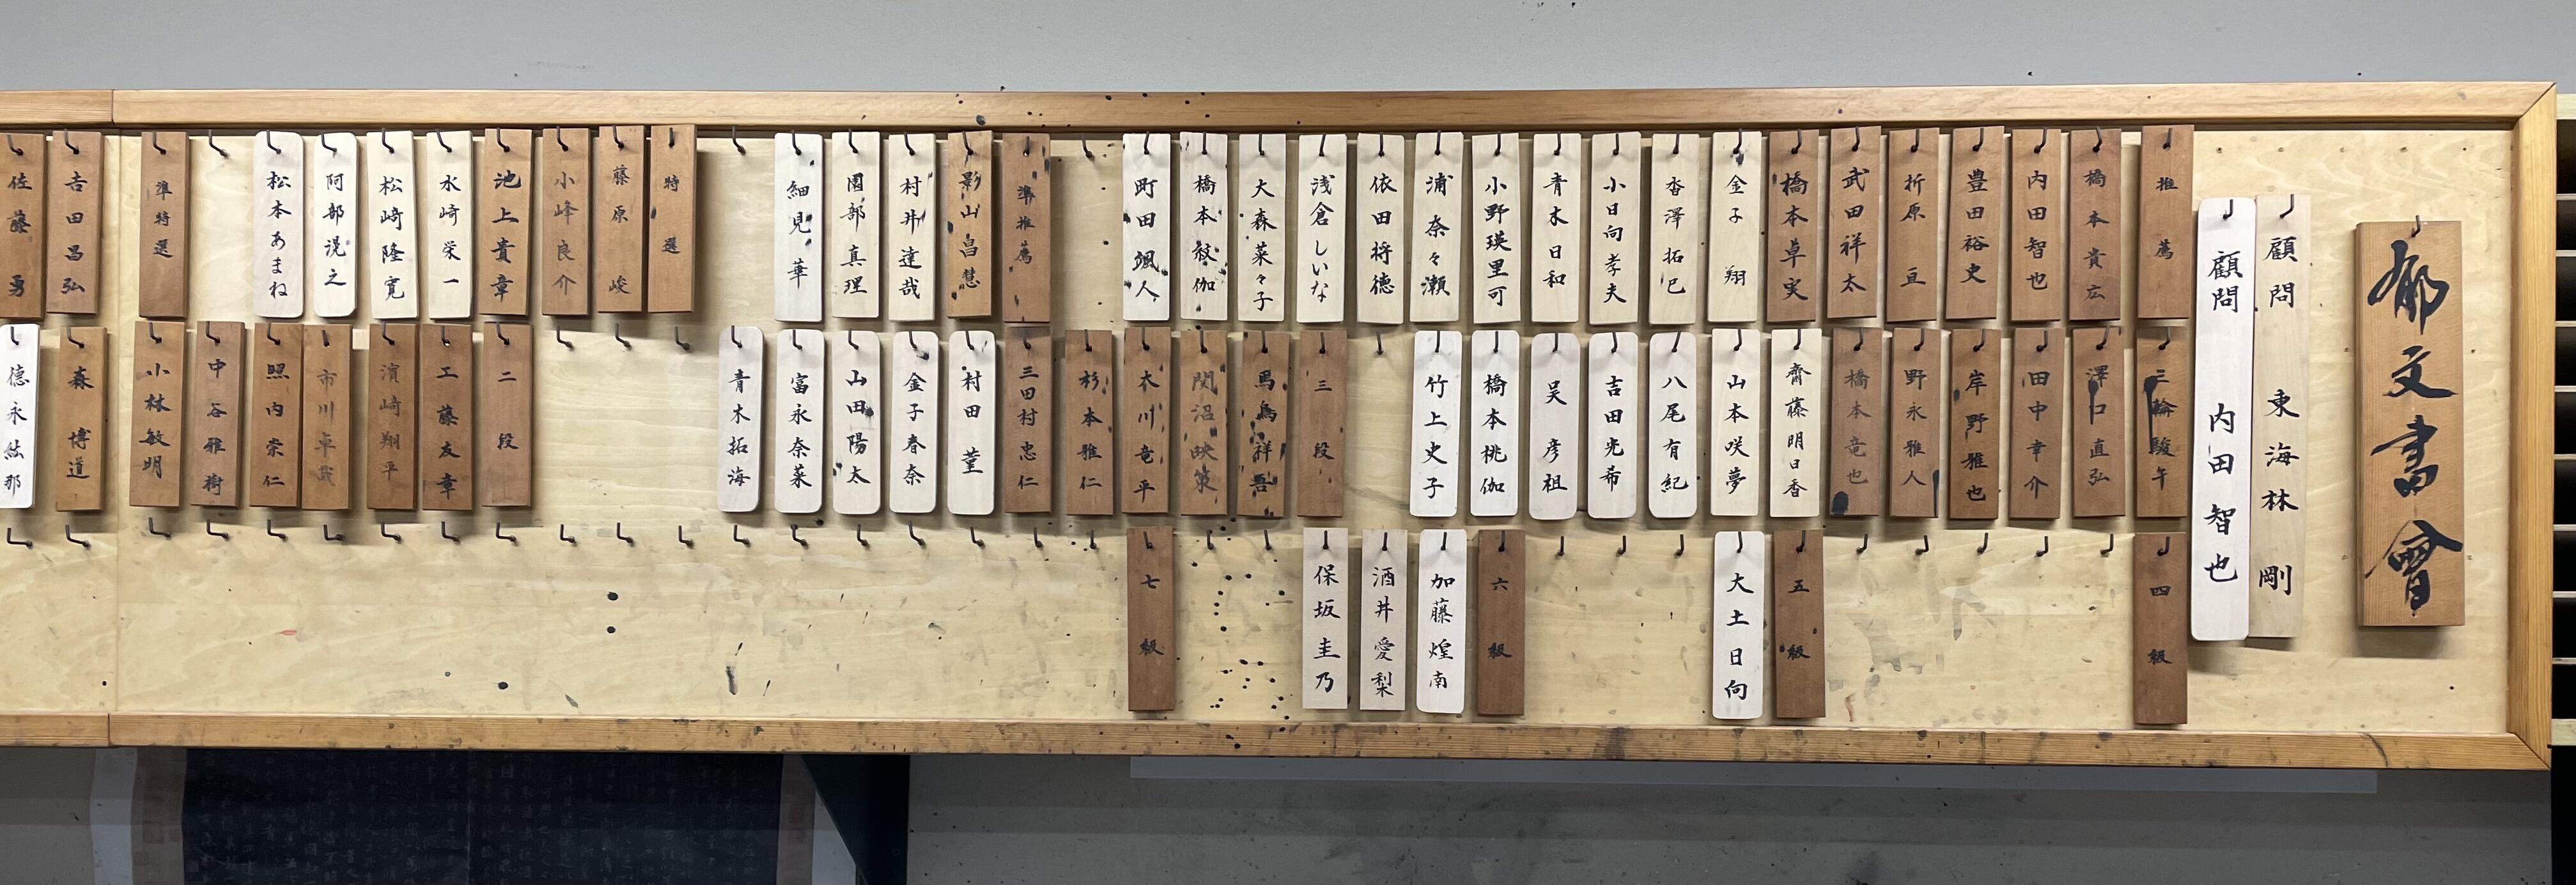 郁文書會
顧問 東海林 剛
顧問 内田 智也
推薦
橋本貴広
内田智也
豊田裕史
折原 亘
武田祥太
橋本卓実
金子 翔
杳澤拓巳
小日向孝夫
青木日和
小野瑛里可
浦奈々瀬
依田将德
浅倉しいな
大森菜々子
橋本紋伽
町田颯人
準推薦
影山昌慧
村井達哉
園部真理
細見 華
特選
藤原 峻
小峰良介
池上貴章
水崎栄一
松崎隆寛
阿部滉之
松本あまね
準特選
吉田昌弘
佐藤 勇
三輪駿午
澤口直弘
田中幸介
岸野雅也
野永雅人
橋本竜也
齊藤明日香
山本咲夢
八尾有紀
吉田光希
吴 彦祖
橋本桃伽
竹上史子
三段
馬島祥吾
関沼映策
木川竜平
杉本雅仁
三田村忠仁
村田 菫
金子春奈
山田陽太
富永奈菜
青木拓海
二段
工藤友章
濱崎翔平
市川卓哉
照内崇仁
中谷雅樹
小林敏明
森 博道
德永結那
四級
五級
大土日向
六級
加藤煌南
酒井愛梨
保坂圭乃
七級